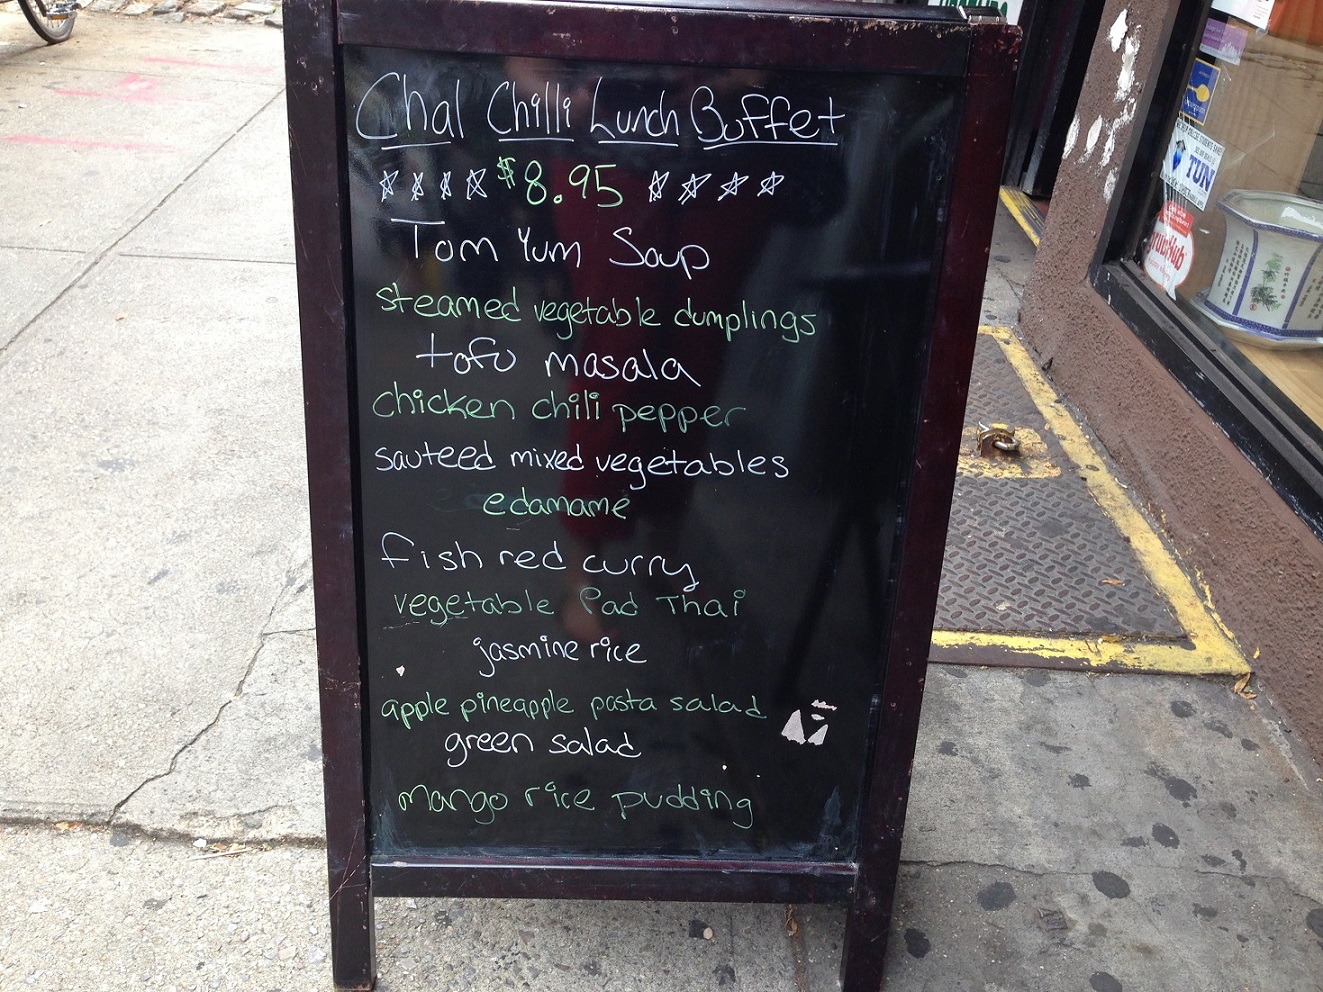 Chal Chilli Lunch Buffet
$8.95
Tom Yum Soup
steamed vegetable dumplings
tofu masala
chicken chili pepper
sauteed mixed vegetables
edamame
fish red curry
vegetable Pad Thai
jasmine rice
apple pineapple pasta salad
green salad
mango rice pudding
TUN